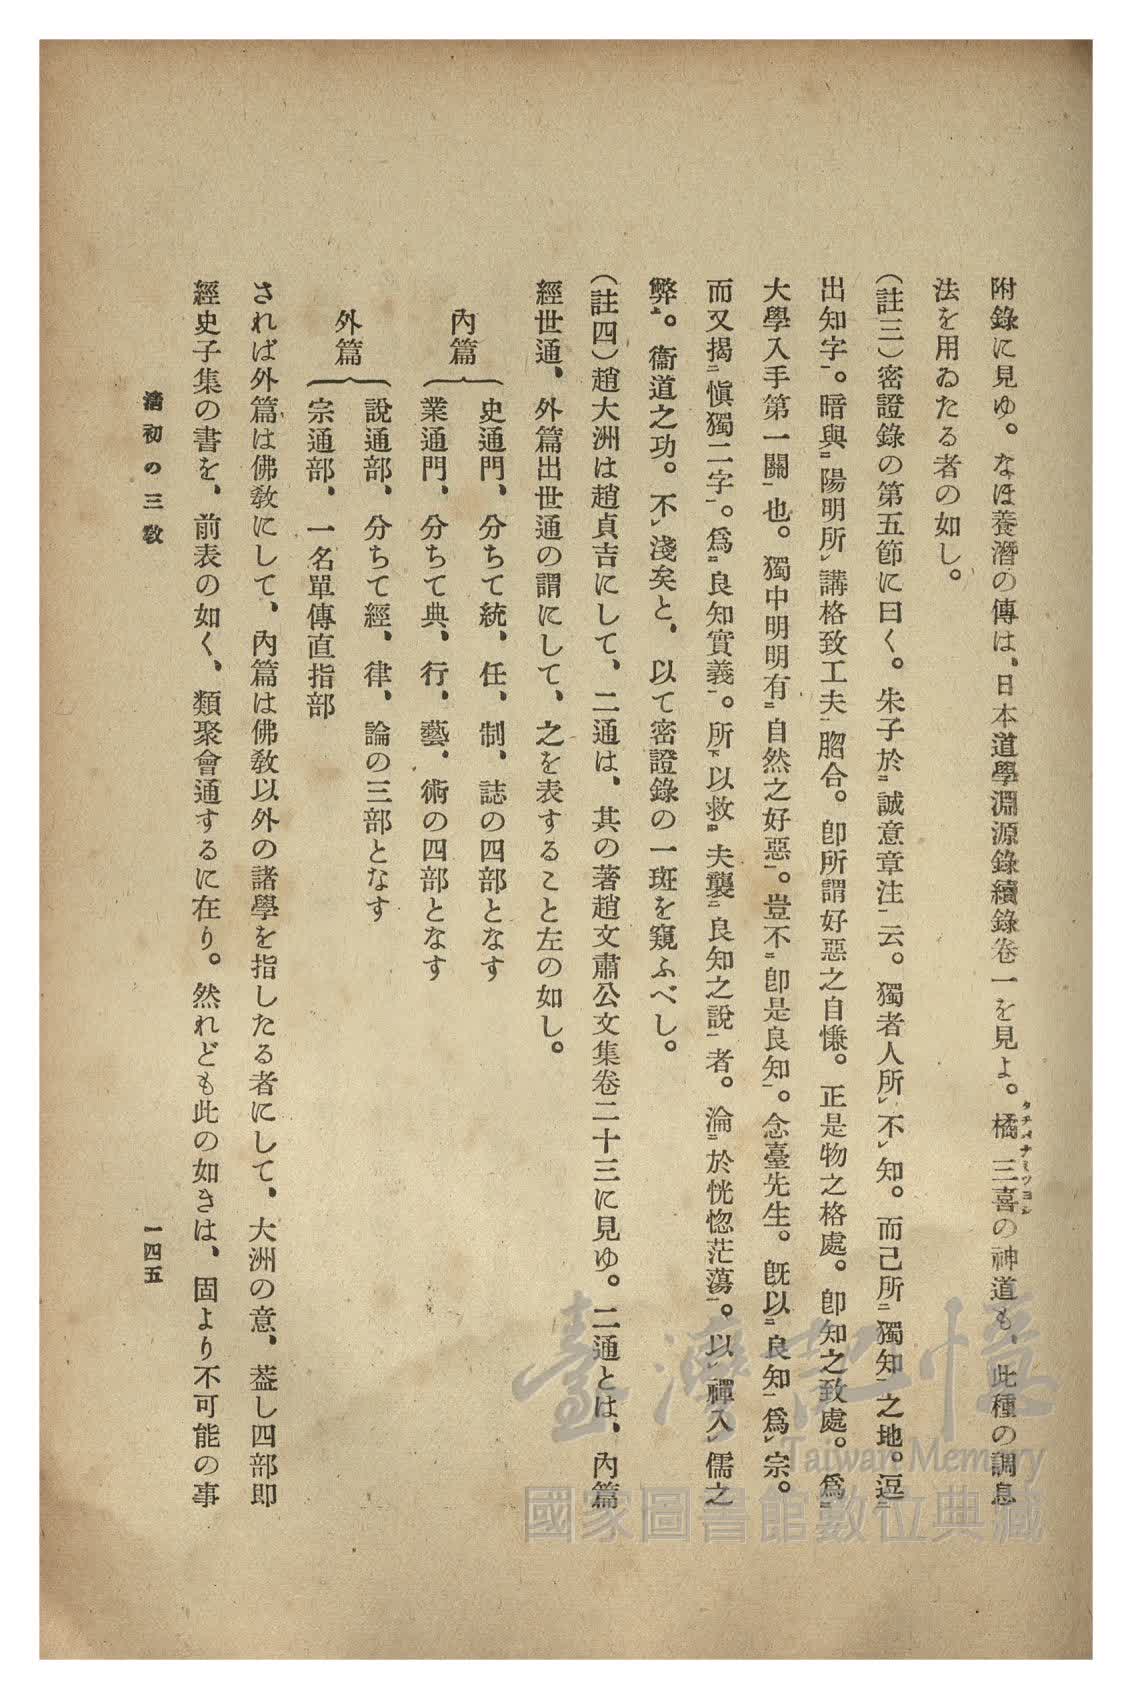 附錄に見ゆ。なほ養潛の傳は、日本道學淵源錄續錄卷一を見よ。橘三喜の神道も、此種の調息
タチバナミツヨシ
法を用ゐたる者の如し。
(註三)密證錄の第五節に曰く。朱子於誠意章注云。獨者人所不知。而己所獨知之地。逗
出知字。暗與陽明所講格致工夫脗合。卽所謂好惡之自慊。正是物之格處。卽知之致處。爲
大學入手第一關也。獨中明明有自然之好惡。豈不卽是良知。念臺先生。旣以良知爲宗。
而又揭愼獨二字。爲良知實義。所以救夫襲良知之說者。淪於恍惚茫蕩。以禪入儒之
弊。衞道之功。不淺矣と、以て密證錄の一斑を窺ふべし。
(註四)趙大洲は趙貞吉にして、二通は、其の著趙文肅公文集卷二十三に見ゆ。二通とは、內篇
經世通、外篇出世通の謂にして、之を表すること左の如し。
內篇
史通門、分ちて統、任、制、誌の四部となす
業通門、分ちて典、行、藝、術の四部となす
外篇
說通部、分ちて經、律、論の三部となす
宗通部、一名單傳直指部
されば外篇は佛敎にして、內篇は佛敎以外の諸學を指したる者にして、大洲の意、葢し四部卽
經史子集の書を、前表の如く、類聚會通するに在り。然れども此の如きは、固より不可能の事
淸初の三敎
一四五
臺灣記憶
Taiwan Memory
國家圖書館數位典藏